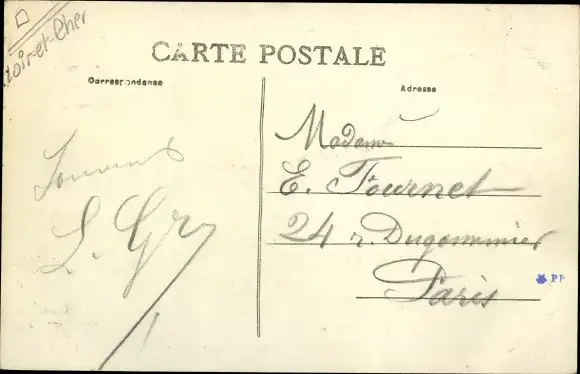 Loir-et-Cher
CARTE POSTALE
Correspondance
Adresse
Souvenir
Madame
E. Fournet
24 r. Dugommier
Paris
PF